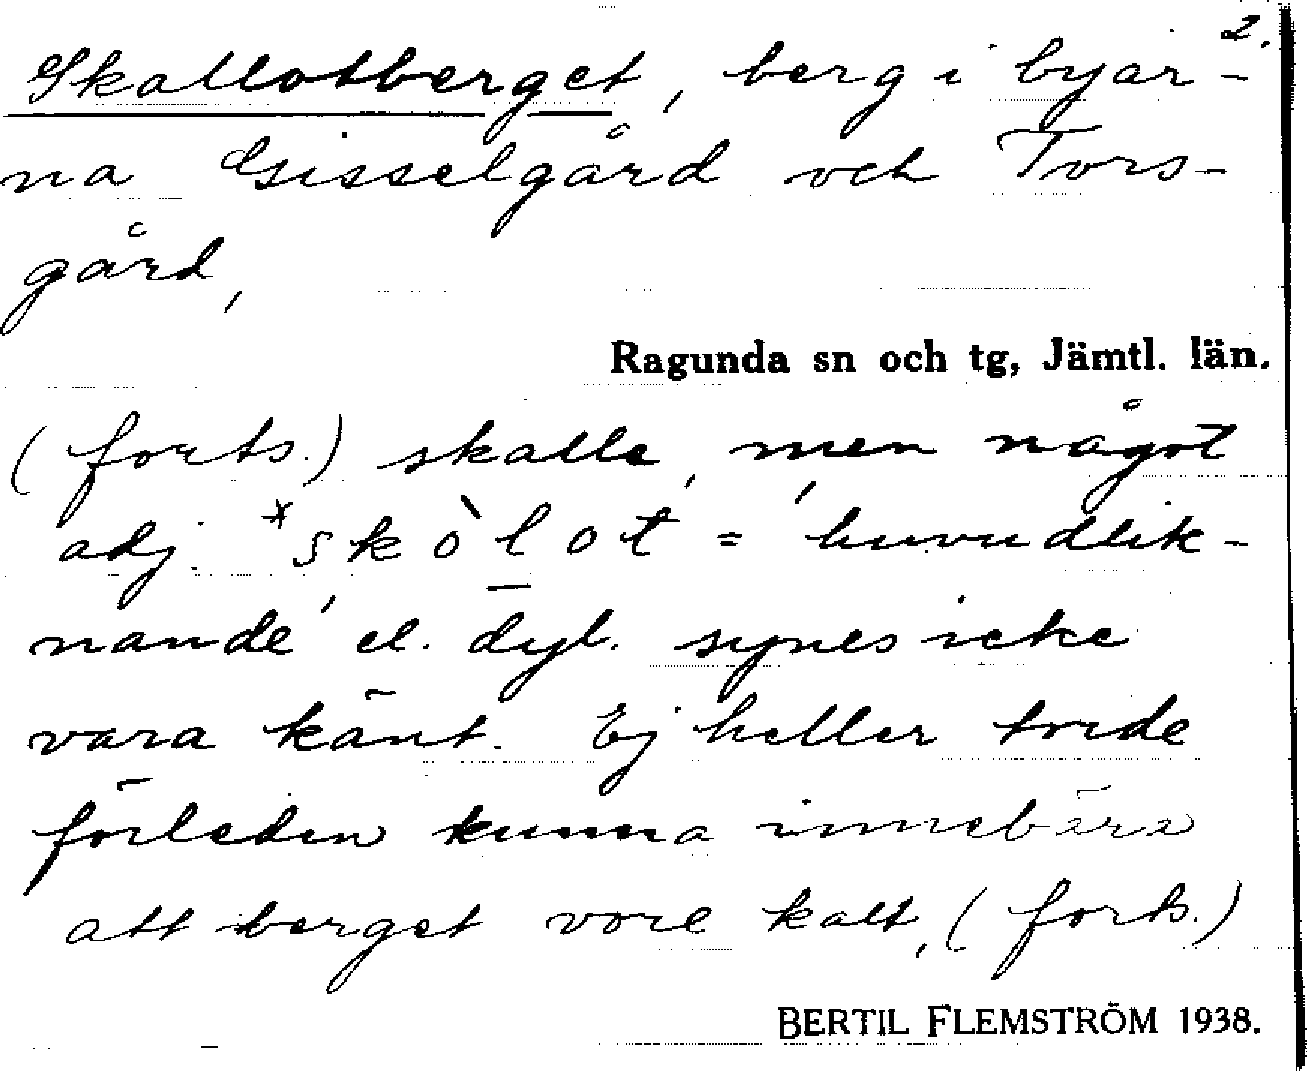 2.
Skallotberget, berg i byar-
na Gisselgård och Tors-
gård,
Ragunda sn och tg, Jämtl. län.
(forts.) skalle, men något
adj. *skòlot = 'huvudlik-
nande' el. dyl. synes icke
vara känt. Ej heller torde
förleden kunna innebära
att berget vore kalt, (forts.)
BERTIL FLEMSTRÖM 1938.